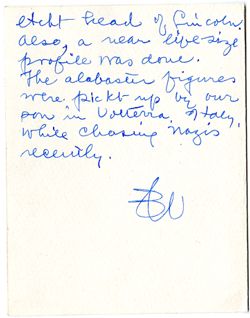 etcht head of Lincoln.
Also, a near life-size
profile was done.
The alabaster figures
were pickt up by our
son in Volterra, Italy,
while chasing Nazis
recently.